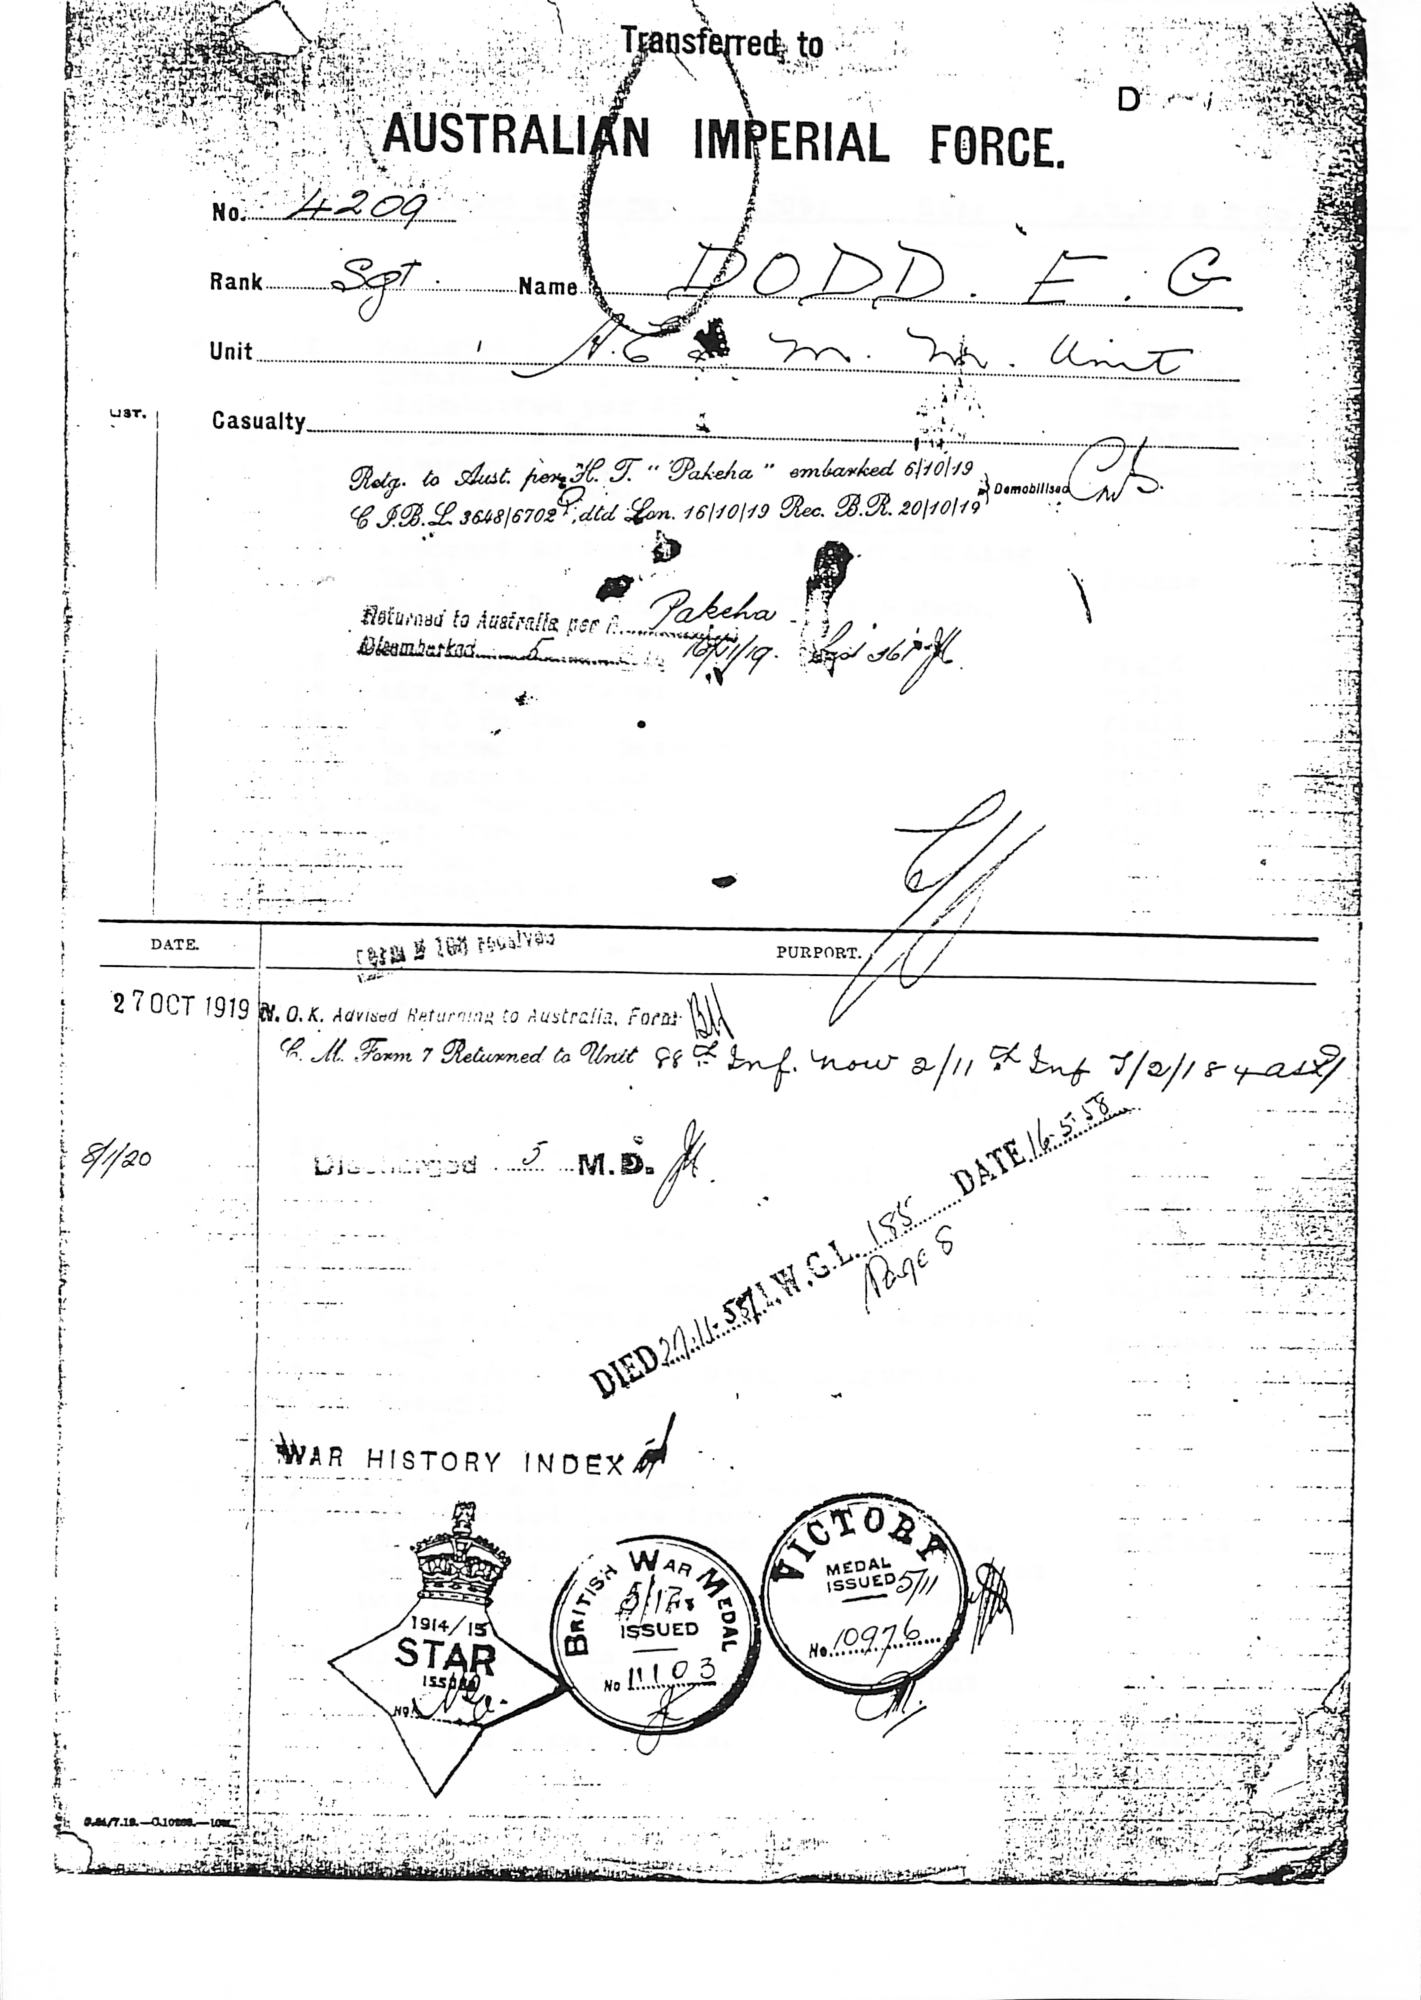 Transferred to
D
AUSTRALIAN IMPERIAL FORCE.
No. 4209
Rank Sgt. Name DODD. E. G
Unit M. M. Unit
LIST.
Casualty
Retg. to Aust. per H. T. "Pakeha" embarked 6/10/19
Demobilised
C I.B.L. 3648/6702, dtd Lon. 16/10/19 Rec. B.R. 20/10/19
Returned to Australia per Pakeha
Disembarked 5 16/11/19.
DATE.
Form B 103 received
PURPORT.
27 OCT 1919 N. O. K. Advised Returning to Australia, Form
C. M. Form 7 Returned to Unit 88th Inf. now 2/11th Inf
8/1/20 Discharged 5 M.D.
DIED 27.11.57 I.W.G.L. 185 DATE 16.5.58
Page 8
WAR HISTORY INDEX
1914/15
STAR
ISSUED
No.
BRITISH WAR MEDAL
ISSUED
No 11103
VICTORY
MEDAL
ISSUED 5/11
No. 10976